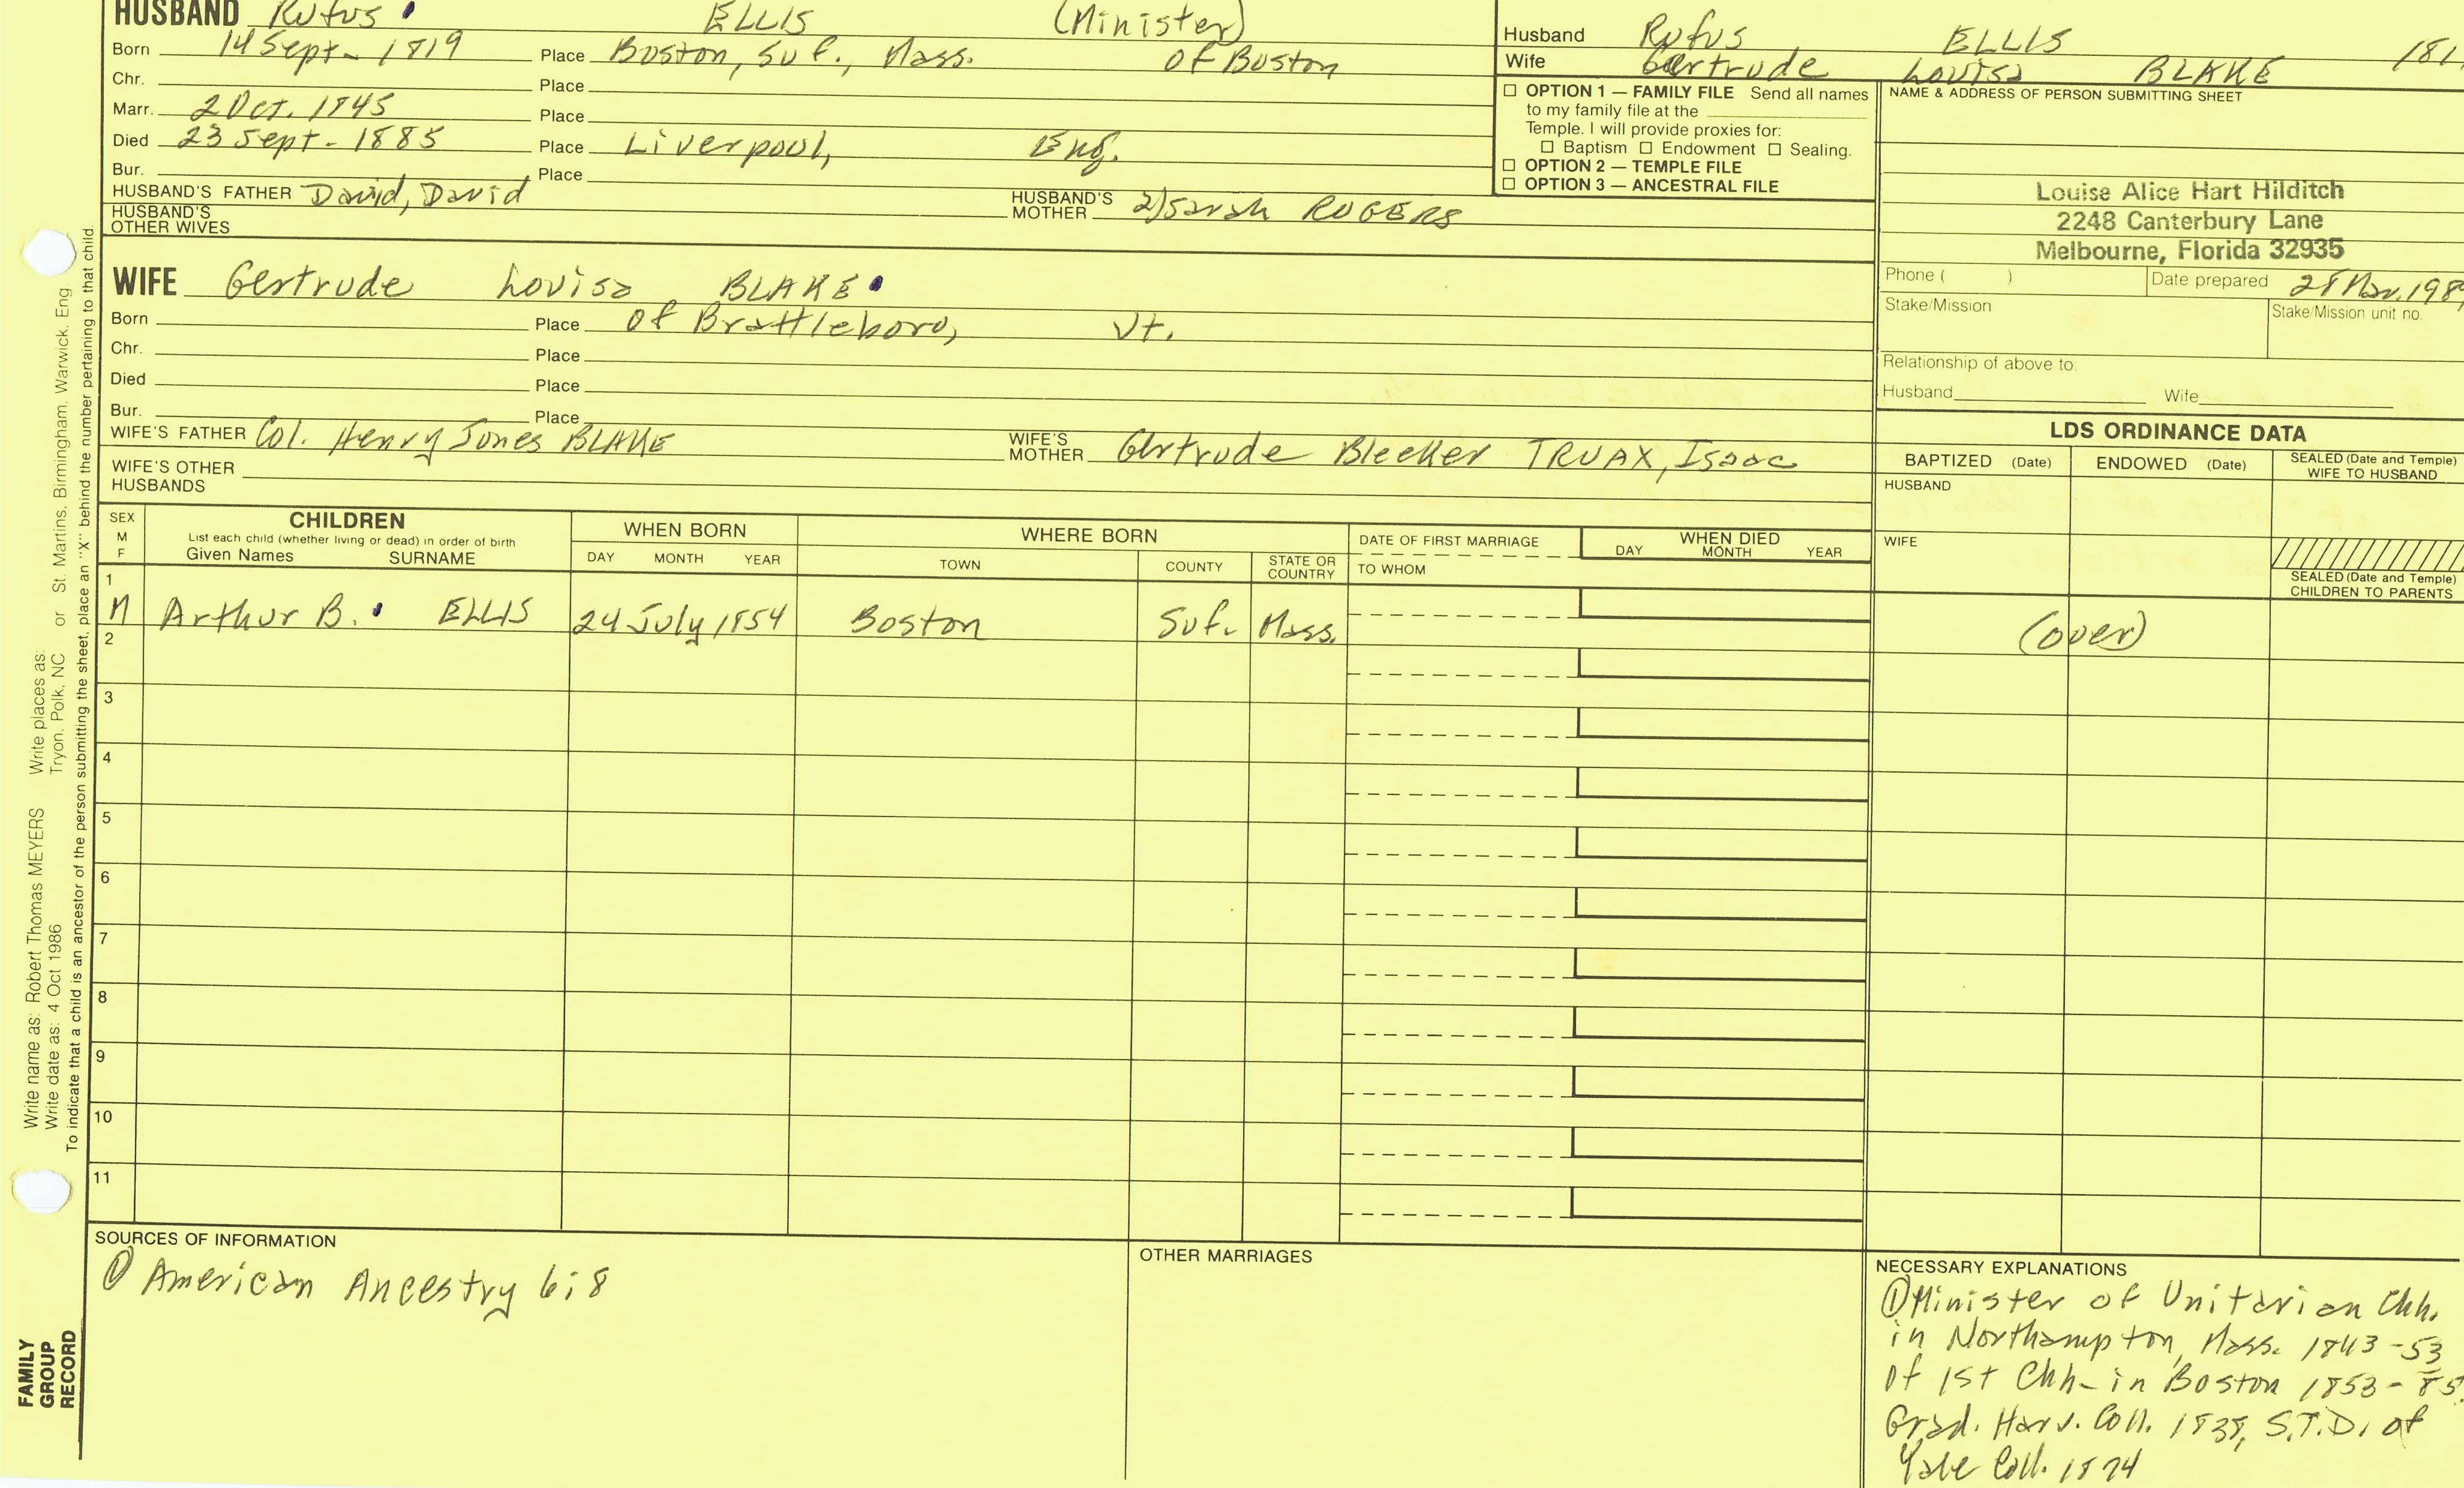 HUSBAND Rufus ELLIS (Minister)
Born 14 Sept- 1819 Place Boston, Suf., Mass. of Boston
Chr. Place
Marr. 2 Oct. 1845 Place
Died 23 Sept- 1885 Place Liverpool, Eng.
Bur. Place
HUSBAND'S FATHER David, David HUSBAND'S MOTHER 2/Sarah ROGERS
HUSBAND'S OTHER WIVES
WIFE Gertrude Louisa BLAKE
Born Place of Brattleboro, Vt.
Chr. Place
Died Place
Bur. Place
WIFE'S FATHER Col. Henry Jones BLAKE WIFE'S MOTHER Gertrude Bleeker TRUAX, Isaac
WIFE'S OTHER HUSBANDS
Husband Rufus ELLIS 181
Wife Gertrude Louisa BLAKE
☐ OPTION 1 — FAMILY FILE Send all names
to my family file at the
Temple. I will provide proxies for:
☐ Baptism ☐ Endowment ☐ Sealing.
☐ OPTION 2 — TEMPLE FILE
☐ OPTION 3 — ANCESTRAL FILE
NAME & ADDRESS OF PERSON SUBMITTING SHEET
Louise Alice Hart Hilditch
2248 Canterbury Lane
Melbourne, Florida 32935
Phone ( ) Date prepared 28 Nov. 198
Stake/Mission Stake/Mission unit no.
Relationship of above to:
Husband Wife
LDS ORDINANCE DATA
BAPTIZED (Date) ENDOWED (Date) SEALED (Date and Temple) WIFE TO HUSBAND
HUSBAND
WIFE
SEALED (Date and Temple)
CHILDREN TO PARENTS
SEX M F
CHILDREN
List each child (whether living or dead) in order of birth
Given Names SURNAME
WHEN BORN
DAY MONTH YEAR
WHERE BORN
TOWN COUNTY STATE OR COUNTRY
DATE OF FIRST MARRIAGE
TO WHOM
WHEN DIED
DAY MONTH YEAR
1
M Arthur B. ELLIS 24 July 1854 Boston Suf. Mass. (over)
2
3
4
5
6
7
8
9
10
11
SOURCES OF INFORMATION
① American Ancestry 6:8
OTHER MARRIAGES
NECESSARY EXPLANATIONS
① Minister of Unitarian Chh.
in Northampton, Mass. 1843-53
of 1st Chh- in Boston 1853-85.
Grad. Harv. Coll. 1838, S.T.D. of
Yale Coll. 1874
Write name as: Robert Thomas MEYERS Write places as:
Write date as: 4 Oct 1986 Tryon, Polk, NC or St. Martins, Birmingham, Warwick, Eng
To indicate that a child is an ancestor of the person submitting the sheet, place an "X" behind the number pertaining to that child.
FAMILY
GROUP
RECORD